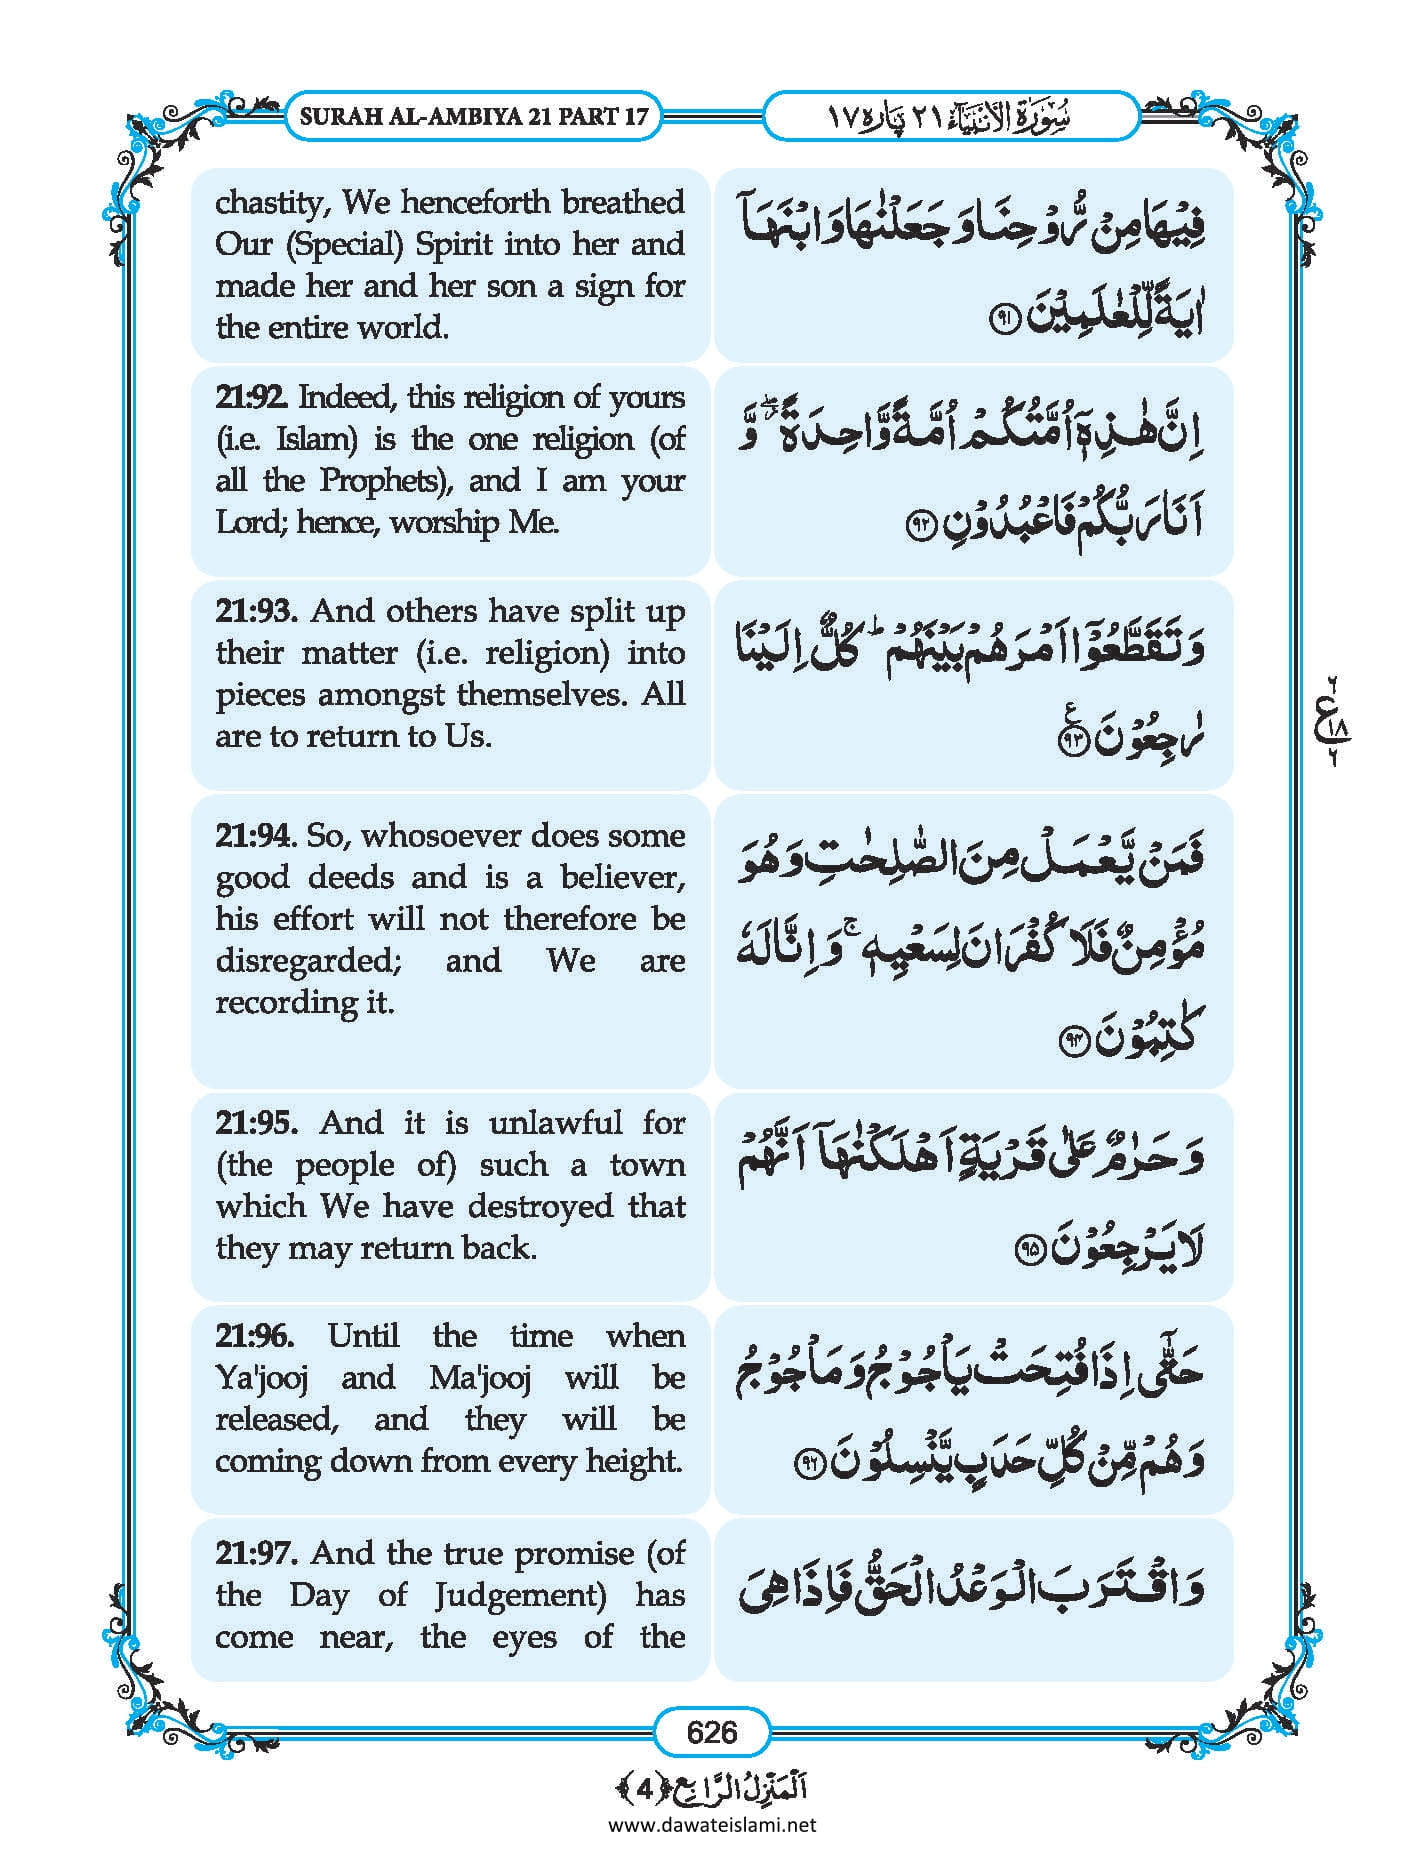 SURAH AL-AMBIYA 21 PART 17
سُوْرَۃُ الْاَنْۢبِیَآء ۲۱ پَارہ ۱۷
chastity, We henceforth breathed
Our (Special) Spirit into her and
made her and her son a sign for
the entire world.
فِیْهَا مِنْ رُّوْحِنَا وَ جَعَلْنٰهَا وَ ابْنَهَاۤ
اٰیَةً لِّلْعٰلَمِیْنَ ﴿۹۱﴾
21:92. Indeed, this religion of yours
(i.e. Islam) is the one religion (of
all the Prophets), and I am your
Lord; hence, worship Me.
اِنَّ هٰذِهٖۤ اُمَّتُكُمْ اُمَّةً وَّاحِدَةً ۖ٘ وَّ
اَنَا رَبُّكُمْ فَاعْبُدُوْنِ ﴿۹۲﴾
21:93. And others have split up
their matter (i.e. religion) into
pieces amongst themselves. All
are to return to Us.
وَ تَقَطَّعُوْۤا اَمْرَهُمْ بَیْنَهُمْ ؕ كُلٌّ اِلَیْنَا
رٰجِعُوْنَ ﴿۹۳﴾ ع
۶
ع ۱۸
۶
21:94. So, whosoever does some
good deeds and is a believer,
his effort will not therefore be
disregarded; and We are
recording it.
فَمَنْ یَّعْمَلْ مِنَ الصّٰلِحٰتِ وَ هُوَ
مُؤْمِنٌ فَلَا كُفْرَانَ لِسَعْیِهٖ ۚ وَ اِنَّا لَهٗ
كٰتِبُوْنَ ﴿۹۴﴾
21:95. And it is unlawful for
(the people of) such a town
which We have destroyed that
they may return back.
وَ حَرٰمٌ عَلٰى قَرْیَةٍ اَهْلَكْنٰهَاۤ اَنَّهُمْ
لَا یَرْجِعُوْنَ ﴿۹۵﴾
21:96. Until the time when
Ya'jooj and Ma'jooj will be
released, and they will be
coming down from every height.
حَتّٰۤى اِذَا فُتِحَتْ یَاْجُوْجُ وَ مَاْجُوْجُ
وَ هُمْ مِّنْ كُلِّ حَدَبٍ یَّنْسِلُوْنَ ﴿۹۶﴾
21:97. And the true promise (of
the Day of Judgement) has
come near, the eyes of the
وَ اقْتَرَبَ الْوَعْدُ الْحَقُّ فَاِذَا هِیَ
626
اَلْمَنْزِلُ الرَّابِع ﴿4﴾
www.dawateislami.net